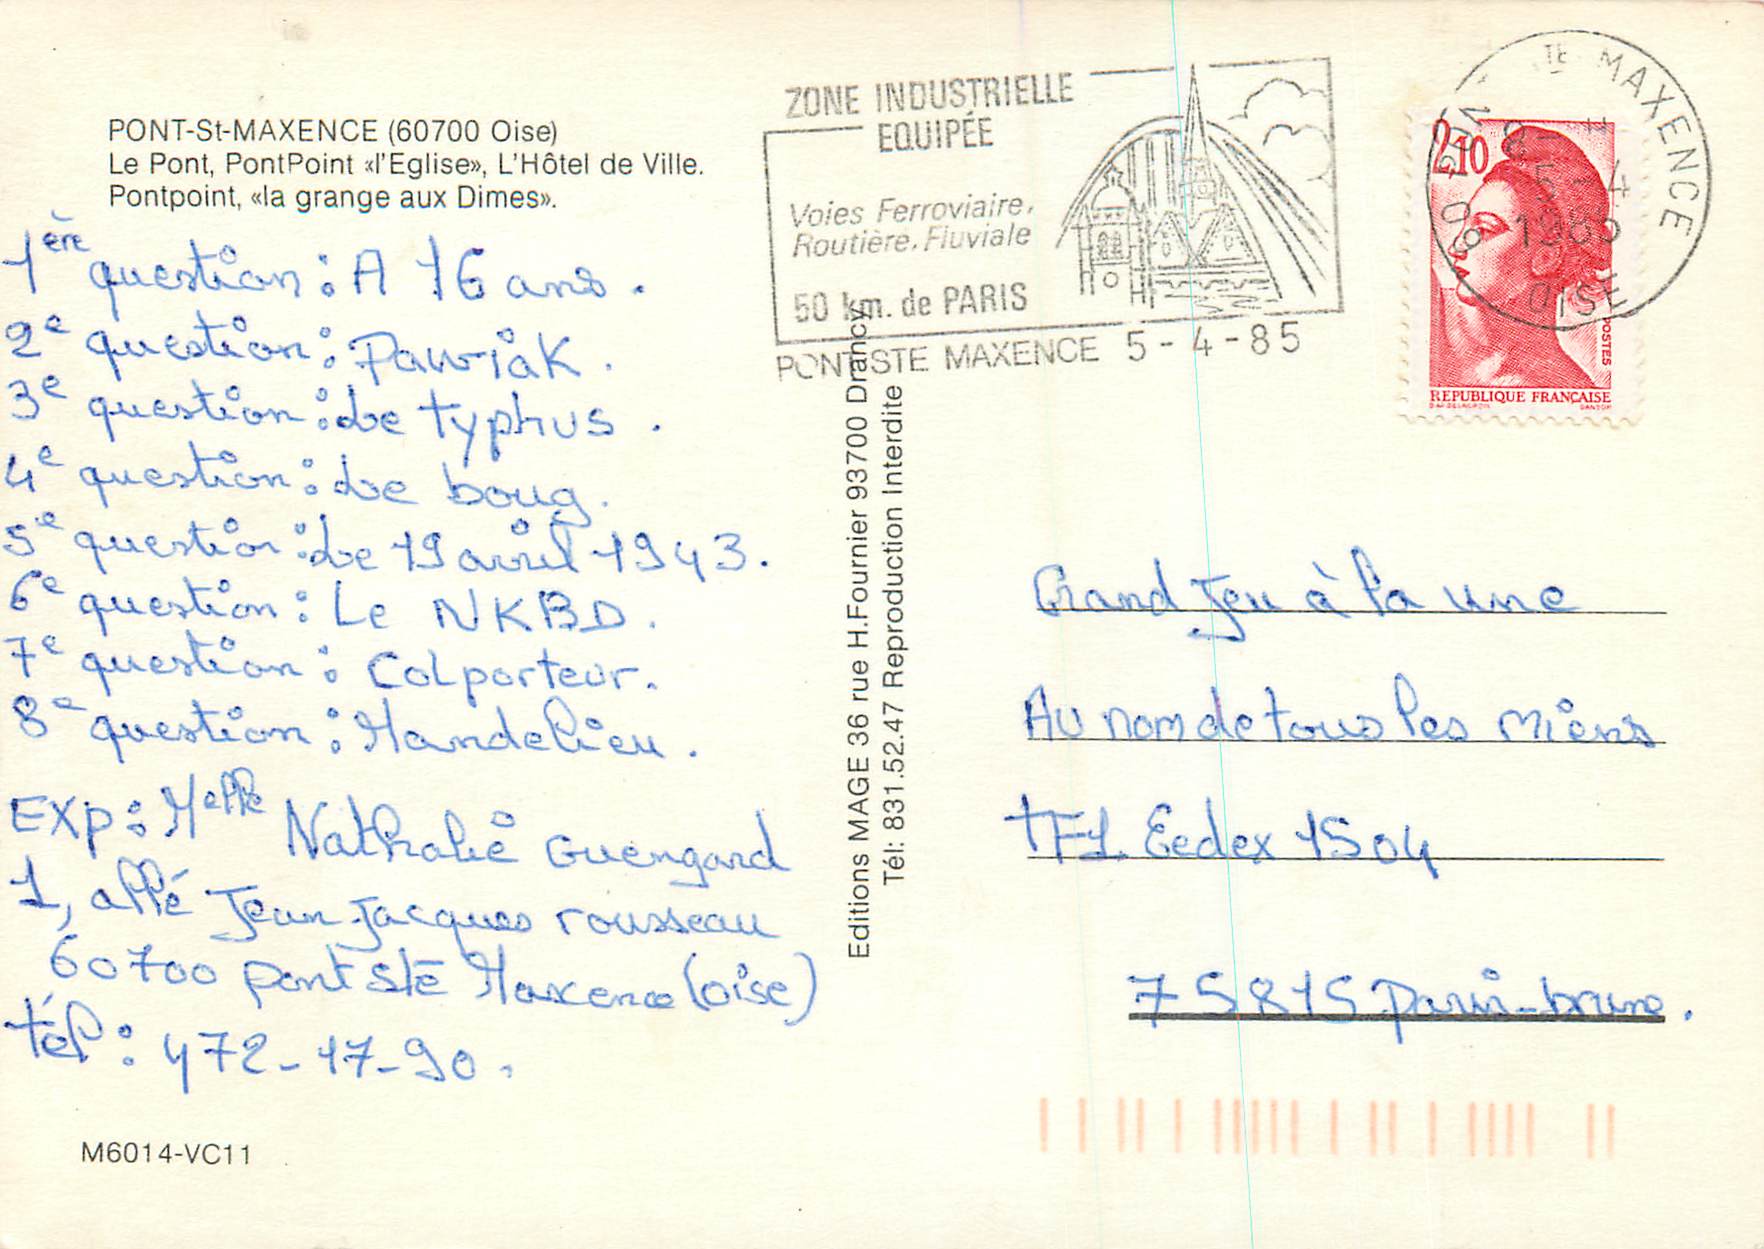 PONT-St-MAXENCE (60700 Oise)
Le Pont, PontPoint «l'Eglise», L'Hôtel de Ville.
Pontpoint, «la grange aux Dimes».
1ère question : A 16 ans.
2e question : Pawiak.
3e question : Le typhus.
4e question : Le boug.
5e question : Le 19 avril 1943.
6e question : Le NKBD.
7e question : Colporteur.
8e question : Mandelieu.
Exp : Melle Nathalie Guengard
1, allé Jean Jacques rousseau
60700 Pont Ste Maxence (oise)
tél : 472-17-90.
M6014-VC11
Editions MAGE 36 rue H.Fournier 93700 Drancy
Tél: 831.52.47 Reproduction Interdite
ZONE INDUSTRIELLE
EQUIPÉE
Voies Ferroviaire,
Routière, Fluviale
50 km. de PARIS
PONT STE MAXENCE 5-4-85
PONT STE MAXENCE
5-4
1985
60 OISE
2,10
POSTES
REPUBLIQUE FRANÇAISE
D'AP. DELACROIX GANDON
Grand Jeu à la une
Au nom de tous les miens
TF1 Cedex 1504
75815 Paris-brune.